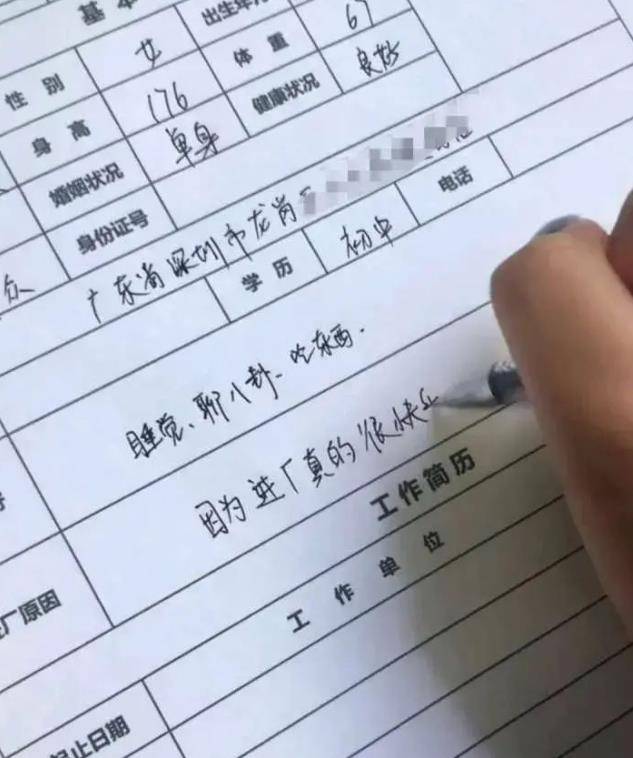 基本
性别 女 出生年月
身高 176 体重 67
婚姻状况 单身 健康状况 良好
身份证号
众 广东省深圳市龙岗
学历 初中 电话
睡觉、聊八卦、吃东西.
厂原因 因为进厂真的很快乐
工作简历
起止日期 工作单位